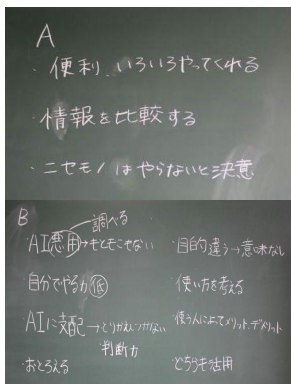 A
・便利、いろいろやってくれる
・情報を比較する
・ニセモノはやらないと決意
B
調べる
・AI悪用→もともこもない
自分でやる力低
・AIに支配→とりかえしつかない
判断力
おとろえる
・目的違う→意味なし
・使い方を考える
・使う人によってメリット、デメリット
・どちらも活用